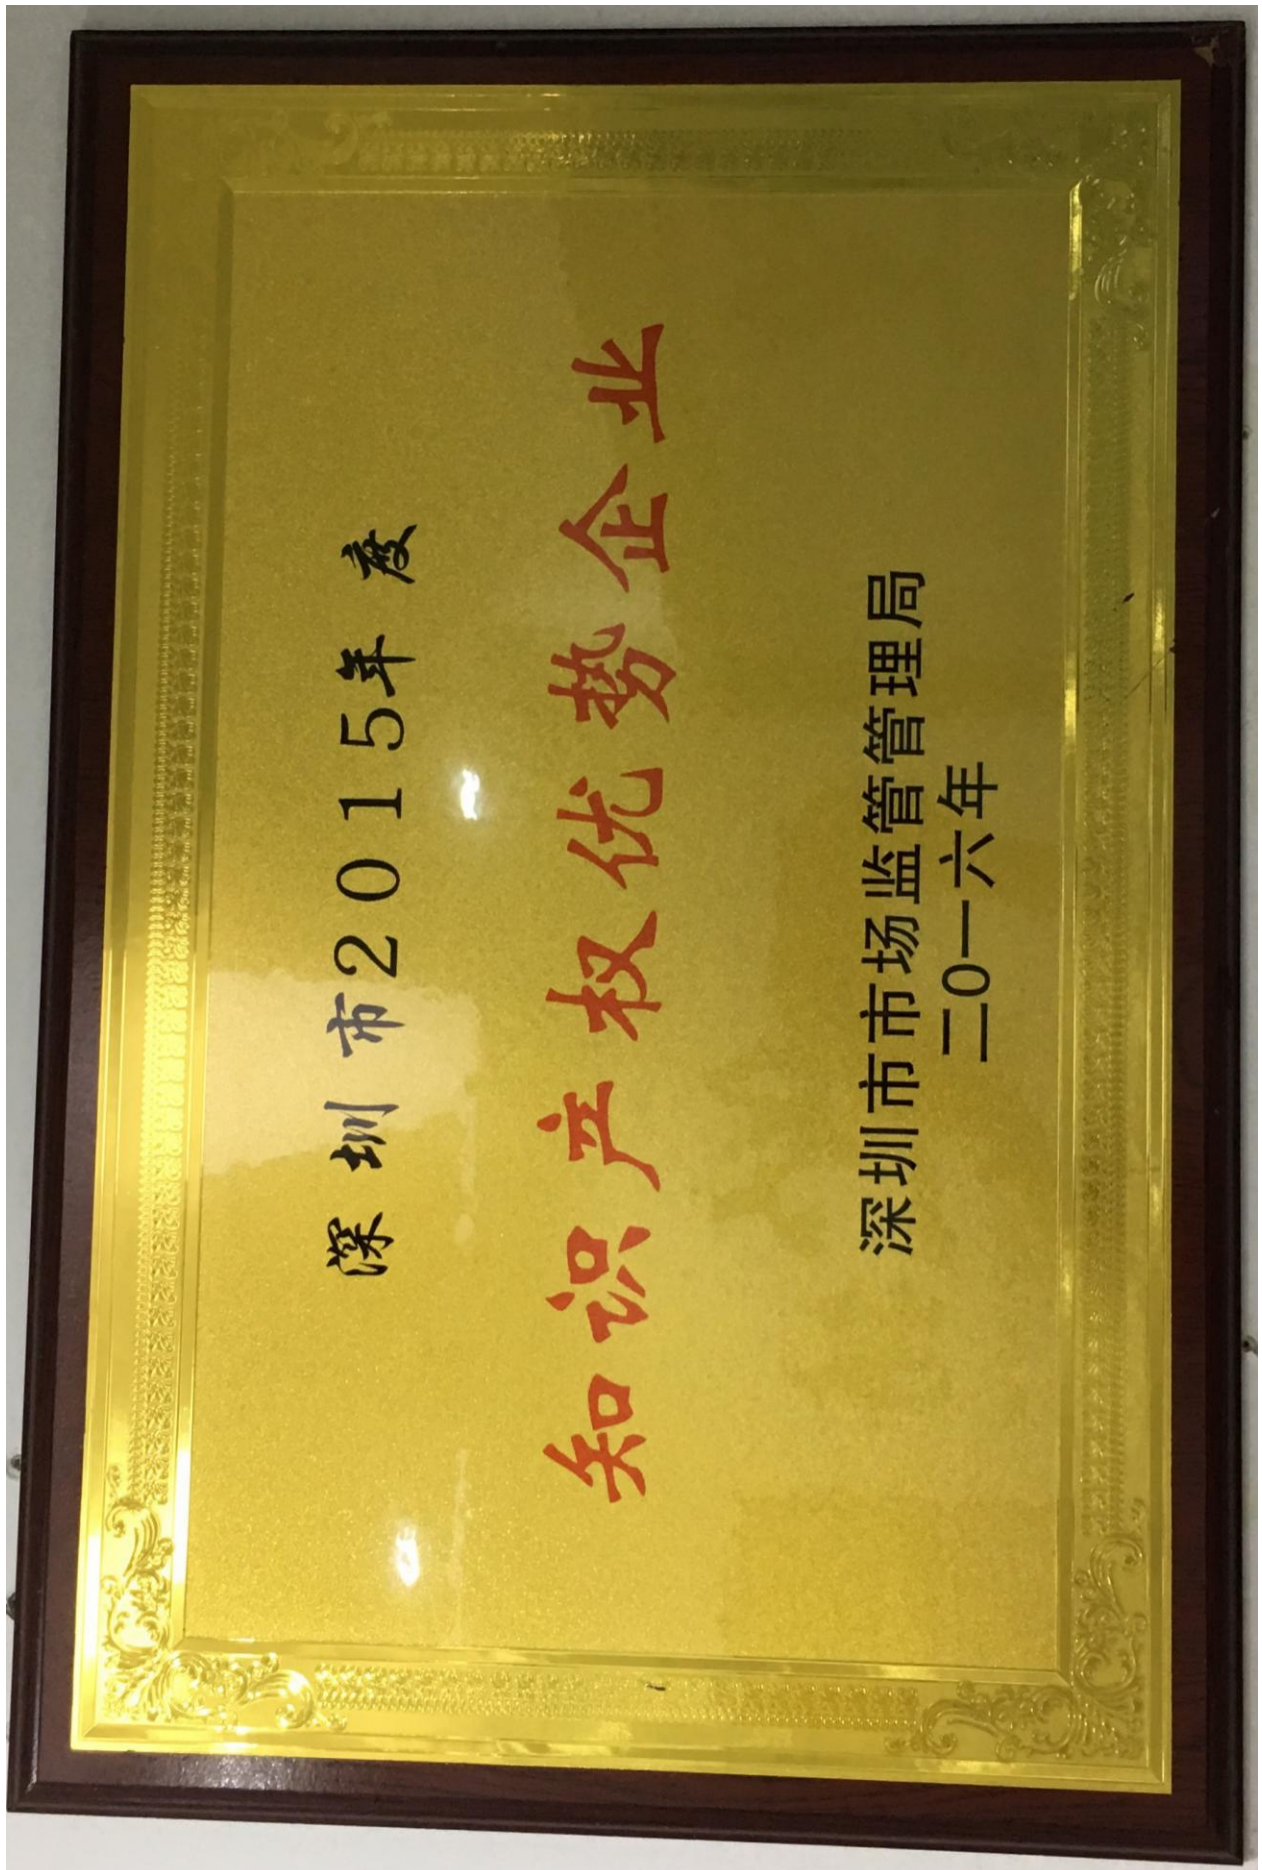 深圳市2015年度
知识产权优势企业
深圳市市场监管管理局
二0一六年